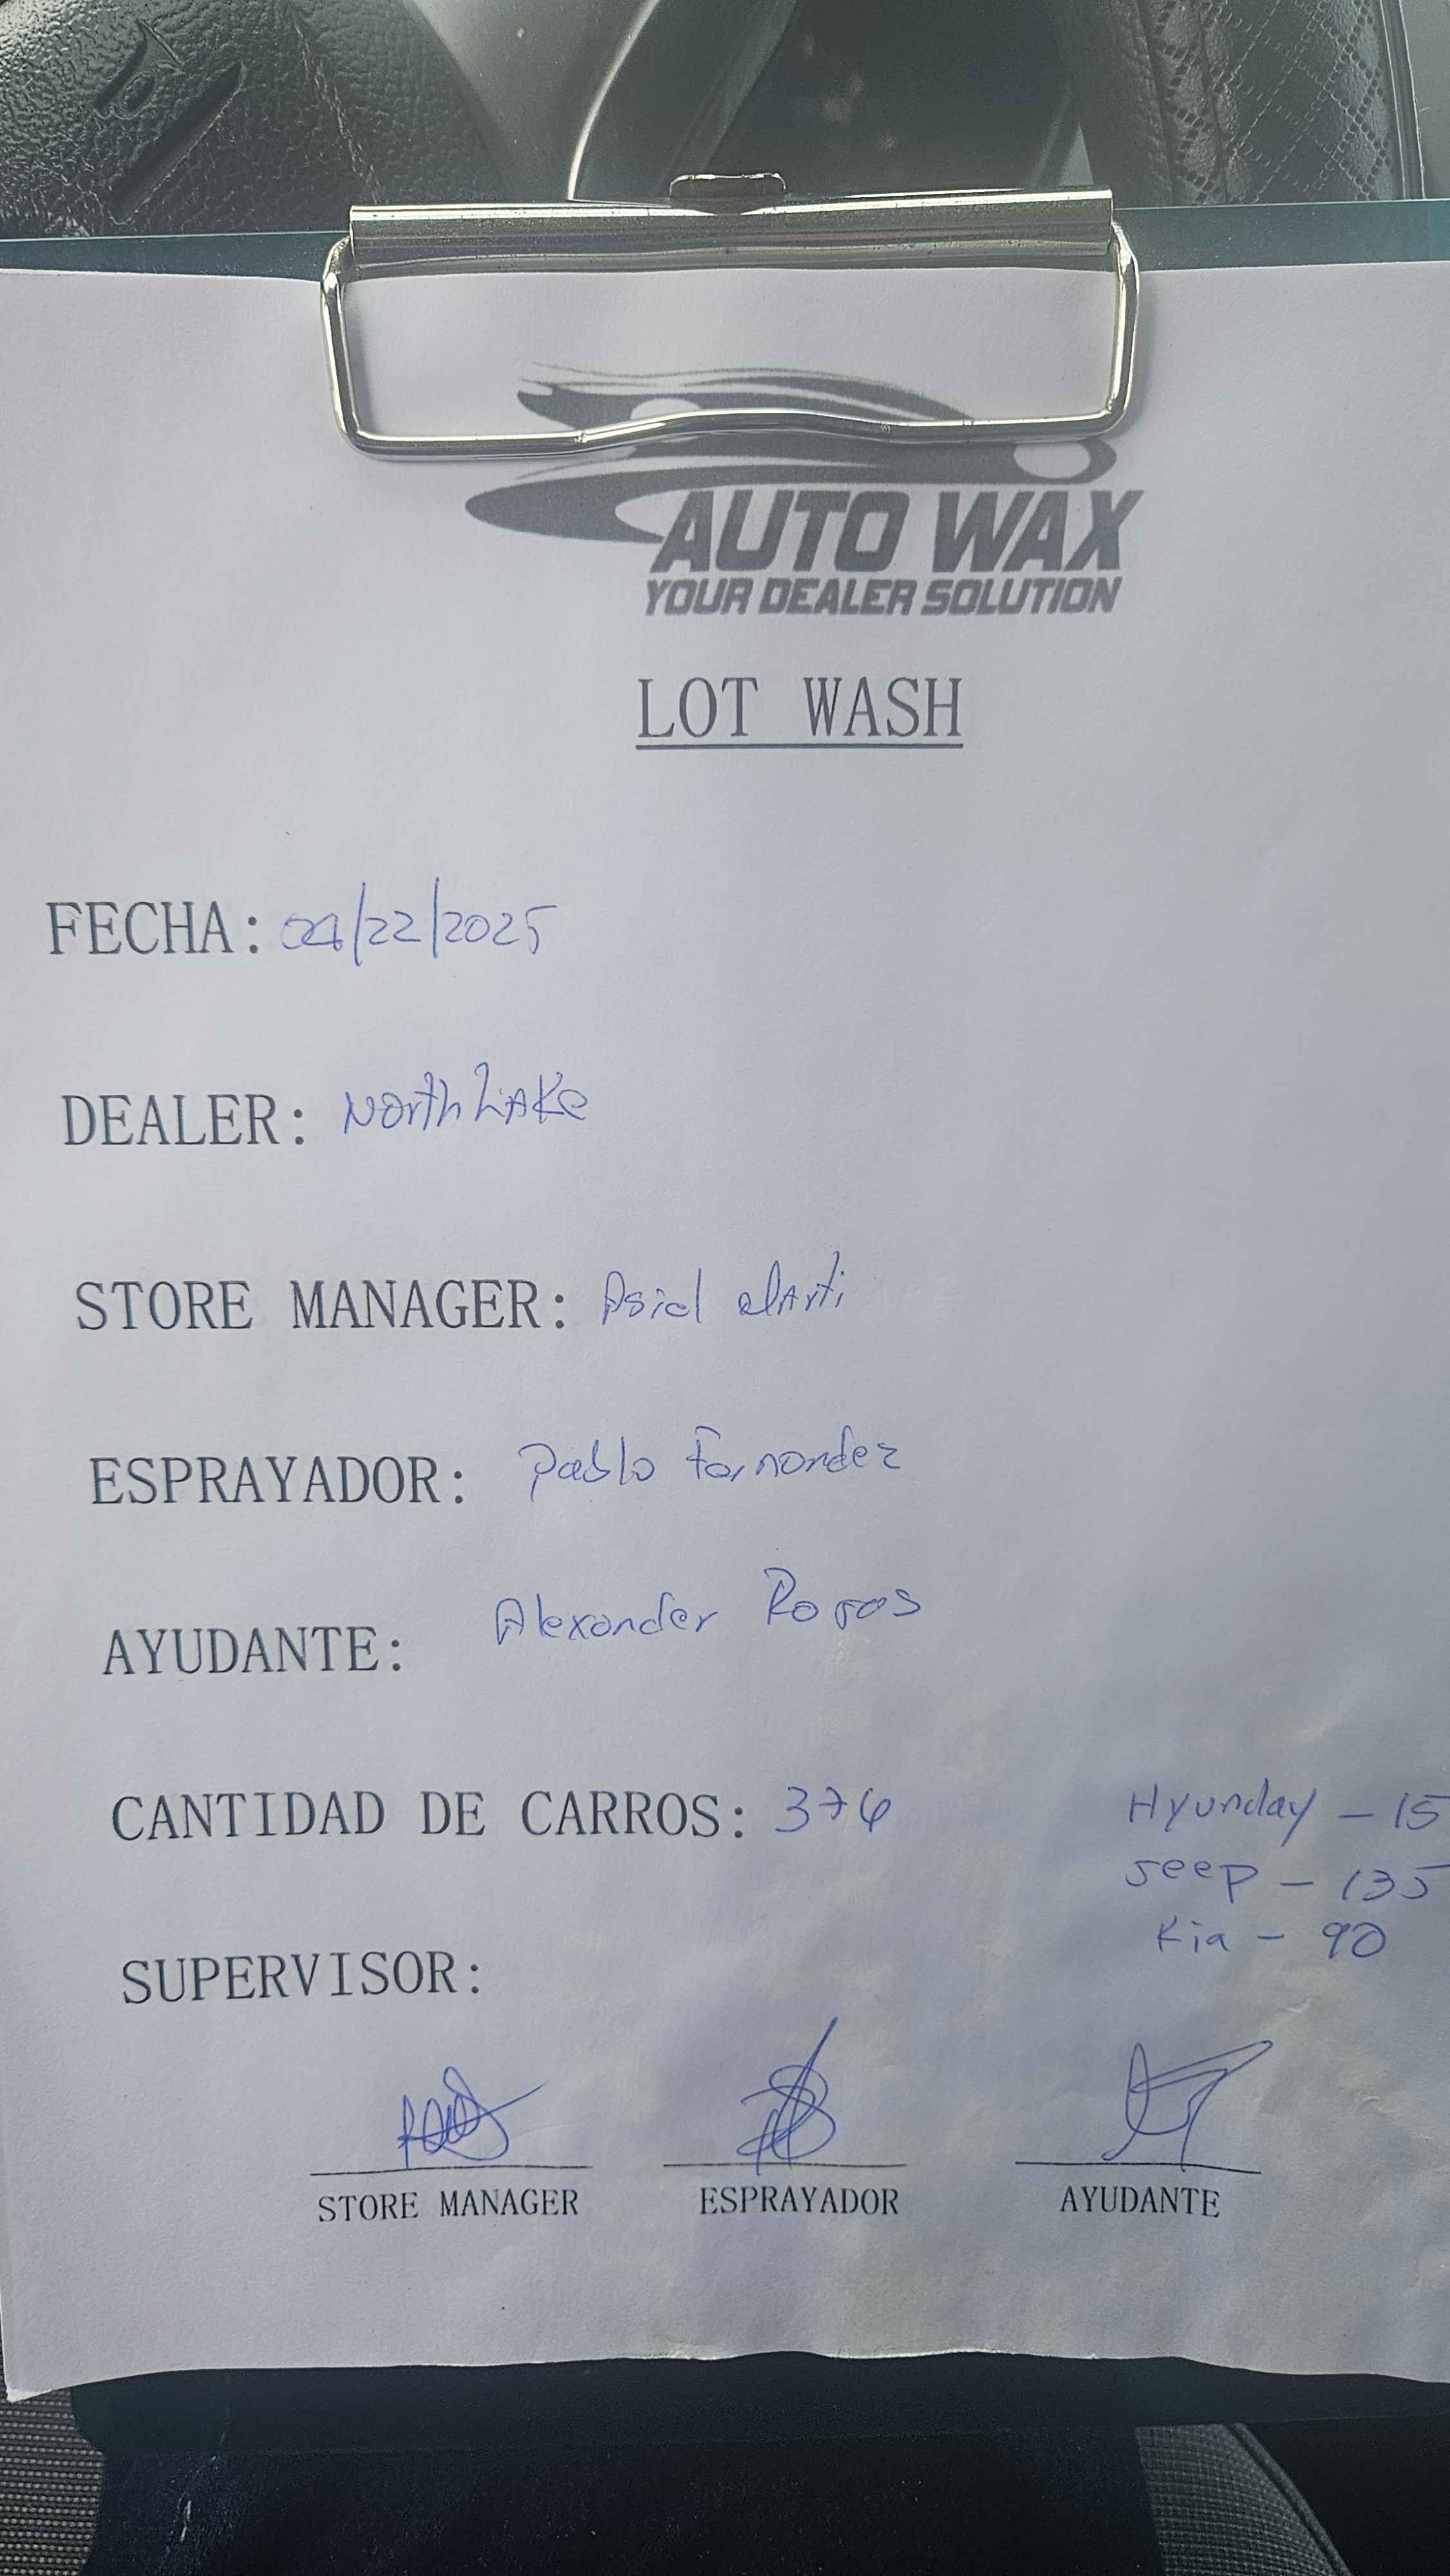 AUTO WAX
YOUR DEALER SOLUTION
LOT WASH
FECHA: 04/22/2025
DEALER: North LAKe
STORE MANAGER: Asiel
ESPRAYADOR: Pablo Fernandez
AYUDANTE: Alexander Rojas
CANTIDAD DE CARROS: 376
Hyunday - 15
Jeep - 135
Kia - 90
SUPERVISOR:
STORE MANAGER ESPRAYADOR AYUDANTE